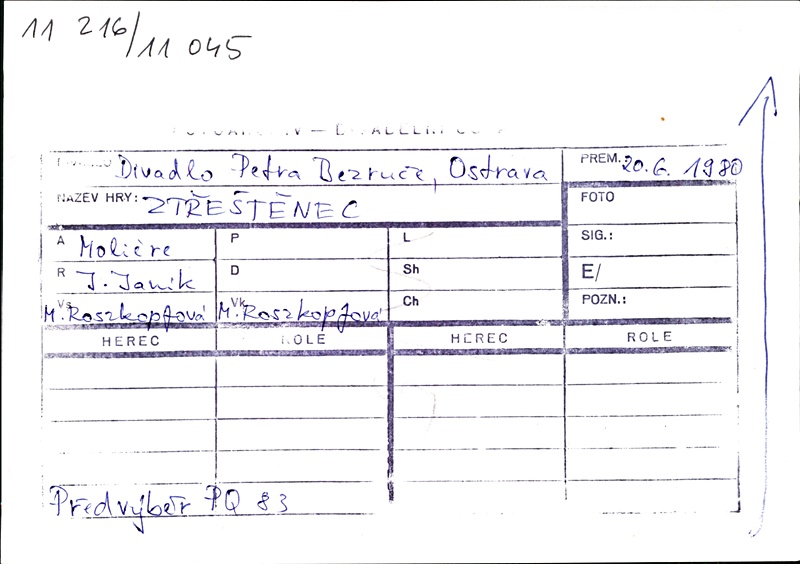 11 216/11 045
Divadlo Petra Bezruče, Ostrava
PREM. 20.6. 1980
NÁZEV HRY: ZTŘEŠTĚNEC
FOTO
A Molière
P
L
SIG.:
R J. Janik
D
Sh
E/
Vs M. Roszkopfová
Vk M. Roszkopfová
Ch
POZN.:
HEREC ROLE HEREC ROLE
Předvýběr PQ 83